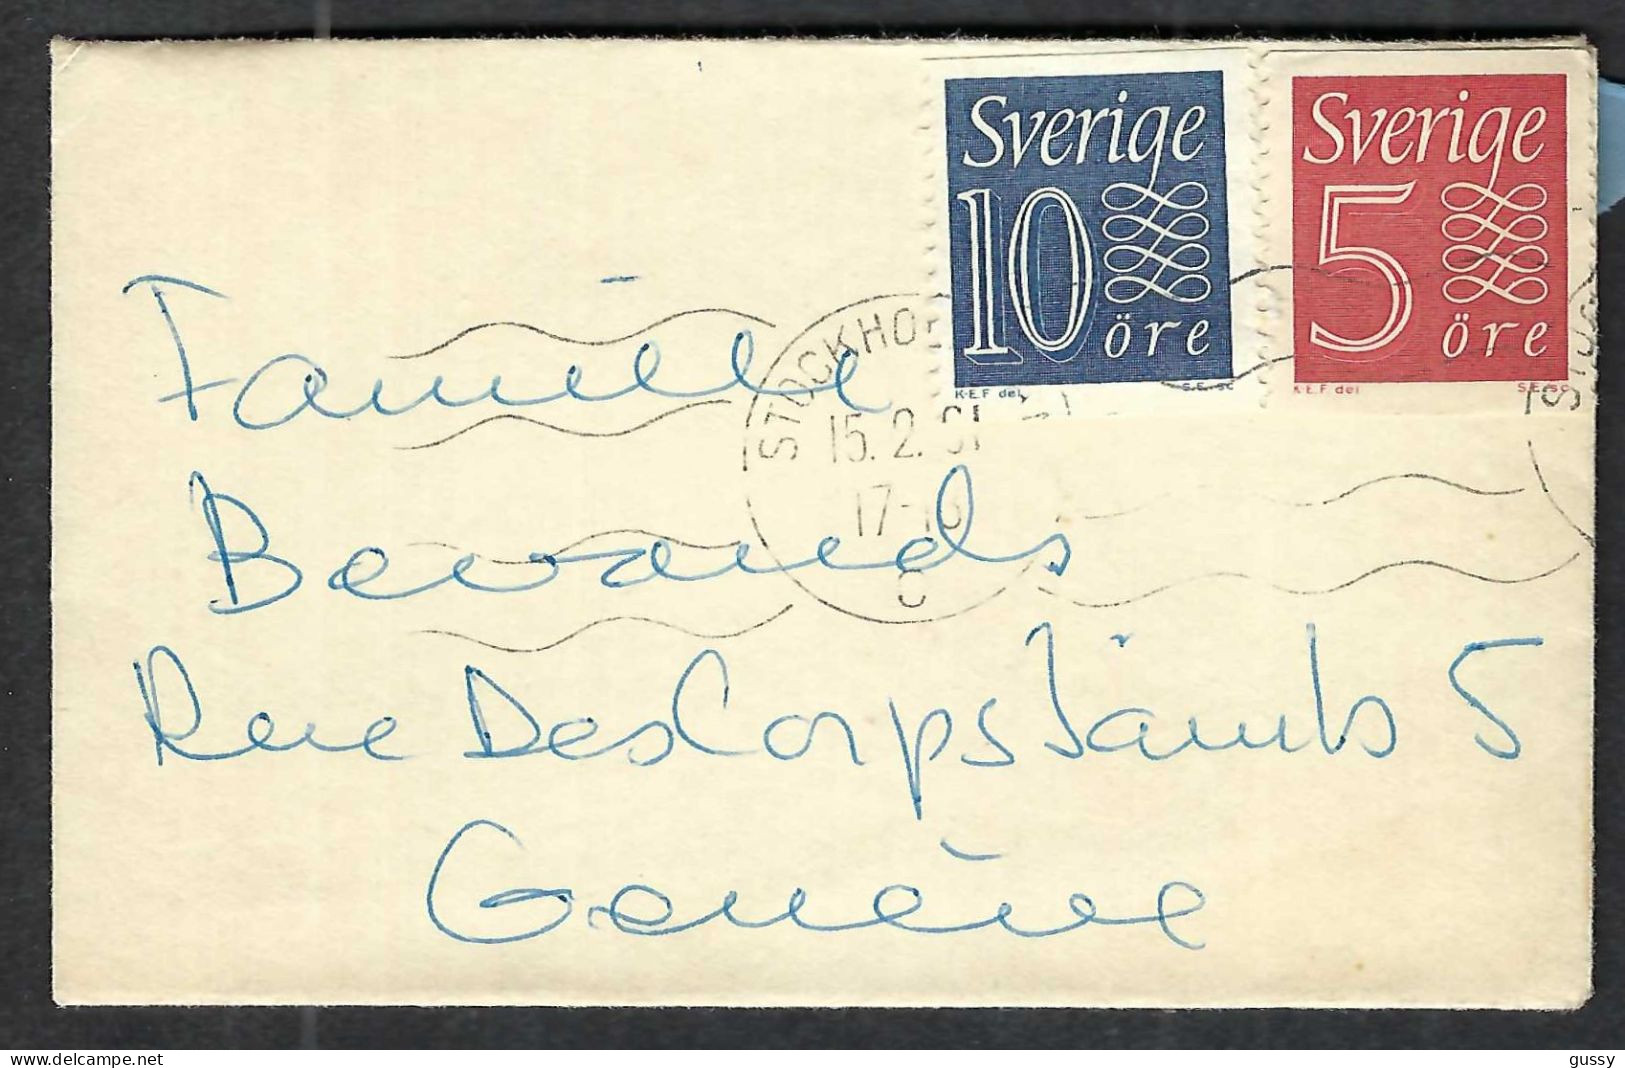 Sverige
10
öre
K-E.F del
S.E. sc
Sverige
5
öre
K-E.F del
S.E. sc
STOCKHO
15. 2. 61
17-18
C
Famille
Bevands
Rue Des Corps Saints 5
Genève
gussy